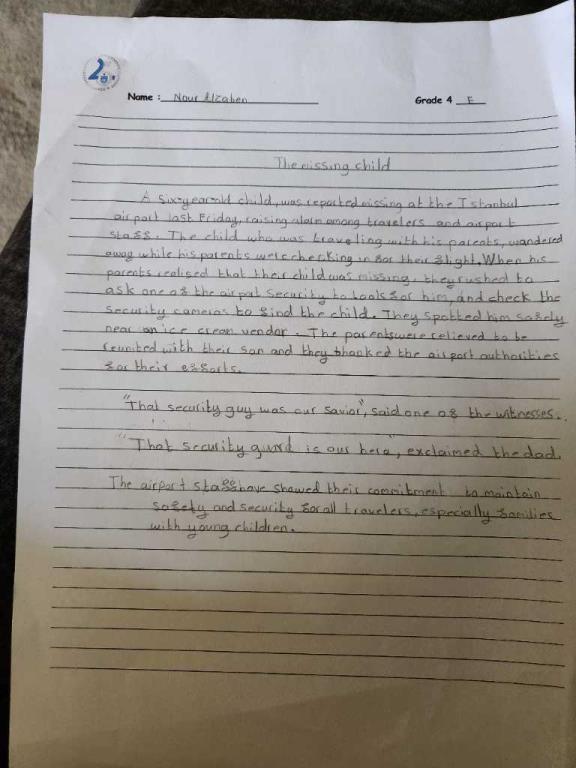 Name : Nour Alzaben
Grade 4 F
The missing child
A six-year-old child, was reported missing at the Istanbul
airport last Friday, raising alarm among travelers and airport
staff. The child who was traveling with his parents, wandered
away while his parents were checking in for their flight. When his
parents realised that their child was missing, they rushed to
ask one of the airport security to look for him, and check the
security cameras to find the child. They spotted him safely
near an ice cream vendor. The parents were relieved to be
reunited with their son and they thanked the airport authorities
for their efforts.
"That security guy was our savior", said one of the witnesses.
"That security guard is our hero", exclaimed the dad.
The airport staff have showed their commitment to maintain
safety and security for all travelers, especially families
with young children.